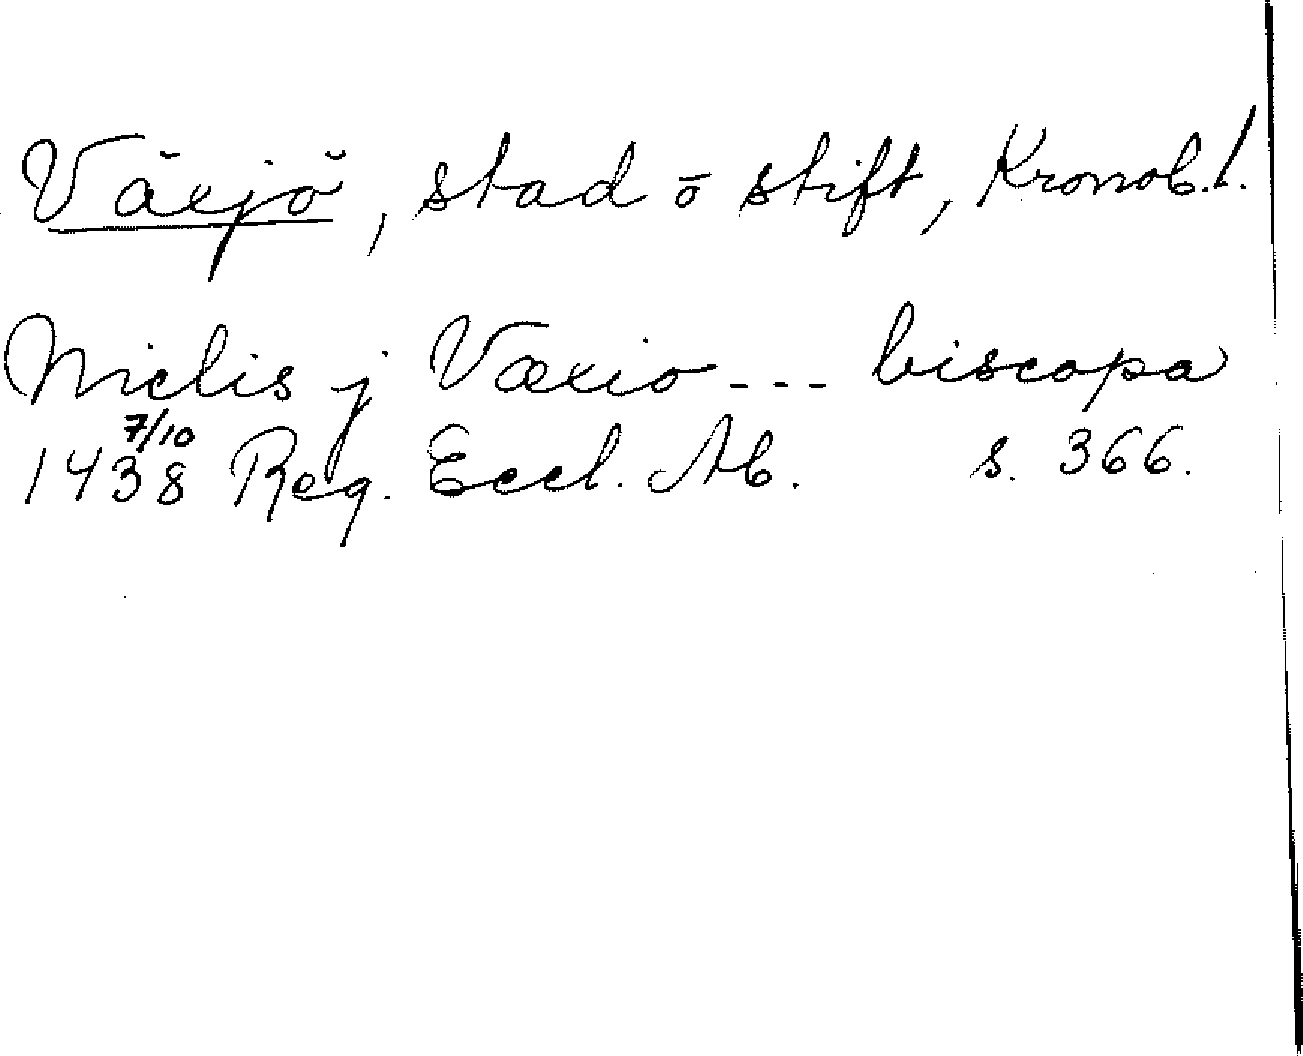 Växjö, stad o stift, Kronob. l.
Nielis j Væxio --- biscopa
1438 7/10 Reg. Eccl. Ab. s. 366.